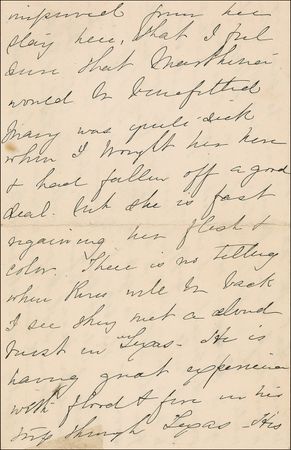 improved from her
stay here, that I feel
sure that
would be benefitted
Mary was quite sick
when I brought her here
& had fallen off a good
deal. but she is fast
regaining her flesh &
color. There is no telling
when will be back
I see they met a cloud
burst in Texas - He is
having great experience
with flood & fire in his
trip through Texas - His